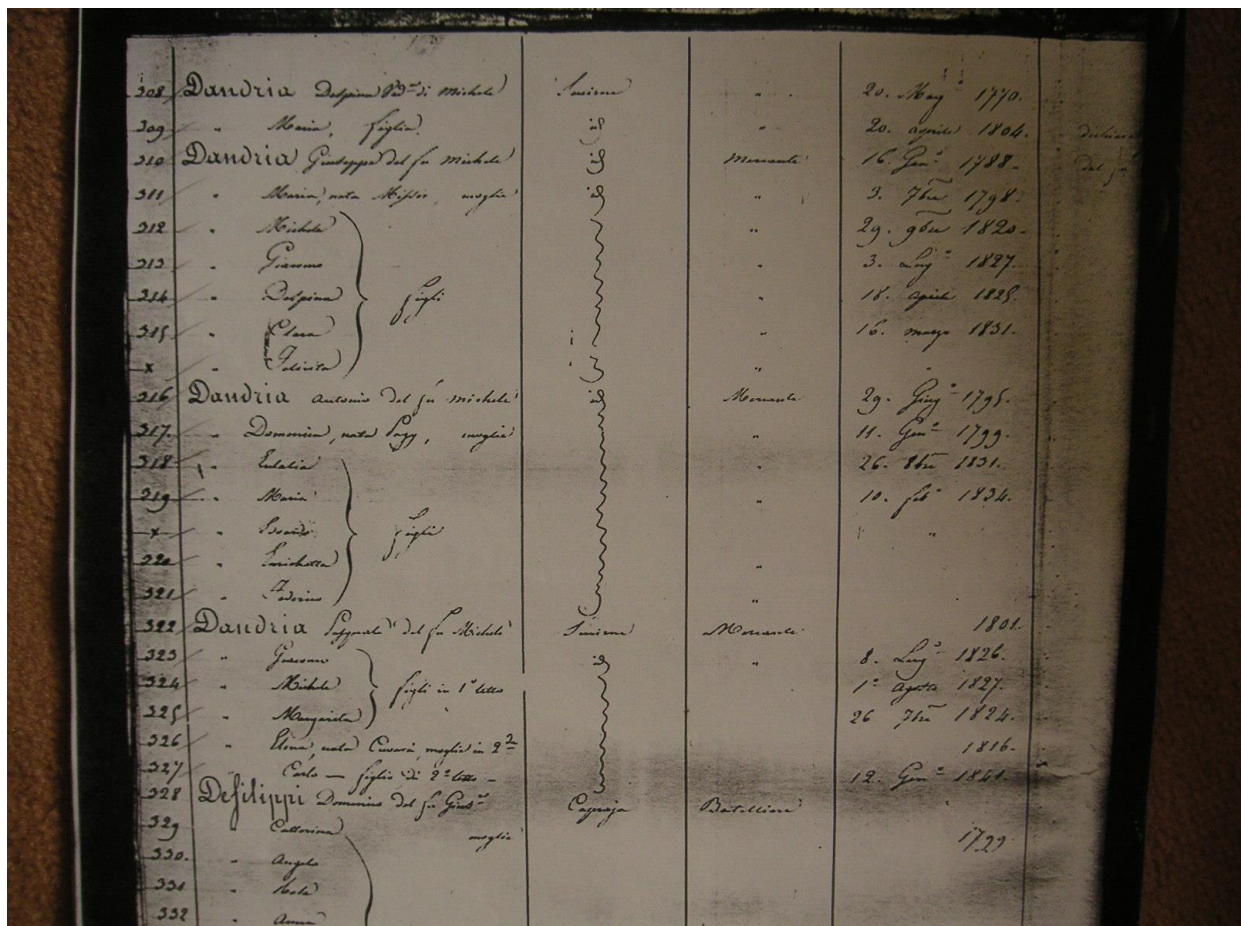 308 Dandria Despina Ved.ª di Michele Smirne " 20. Mag.º 1770.
309 " Maria, figlia. id " 20. aprile 1804.
310 Dandria Giuseppe del fu Michele id Mercante 16. Gen.º 1788.
311 " Maria, nata moglie id " 3. 7bre 1798.
312 " Michele " 29. 9bre 1820.
313 " Giacomo " 3. Lug.º 1827.
314 " Despina figli " 18. aprile 1825.
315 " Clara " 16. marzo 1831.
x " Felicita "
316 Dandria Antonio del fu Michele id Mercante 29. Giug.º 1795.
317. " Domenica, nata moglie " 11. Gen.º 1799.
318 " Eulalia " 26. 8bre 1831.
319 " Maria " 10. feb.º 1834.
x " figli "
320 " Enrichetta "
321 " Federico "
322 Dandria Pasquale del fu Michele Smirne Mercante 1801.
323 " Giacomo id " 8. Lug.º 1826.
324 " Michele figli in 1º letto 1º agosto 1827.
325 " Margarita 26 7bre 1824.
326 " Elena, nata moglie in 2de 1816.
327 " Carlo — figlio di 2º letto - 12. Gen.º 1841.
328 Defilippi Domenico del fu Gius.e Capraja Batelliere
329 " Catterina moglie 1799
330. " Angelo
331 "
332 " Anna